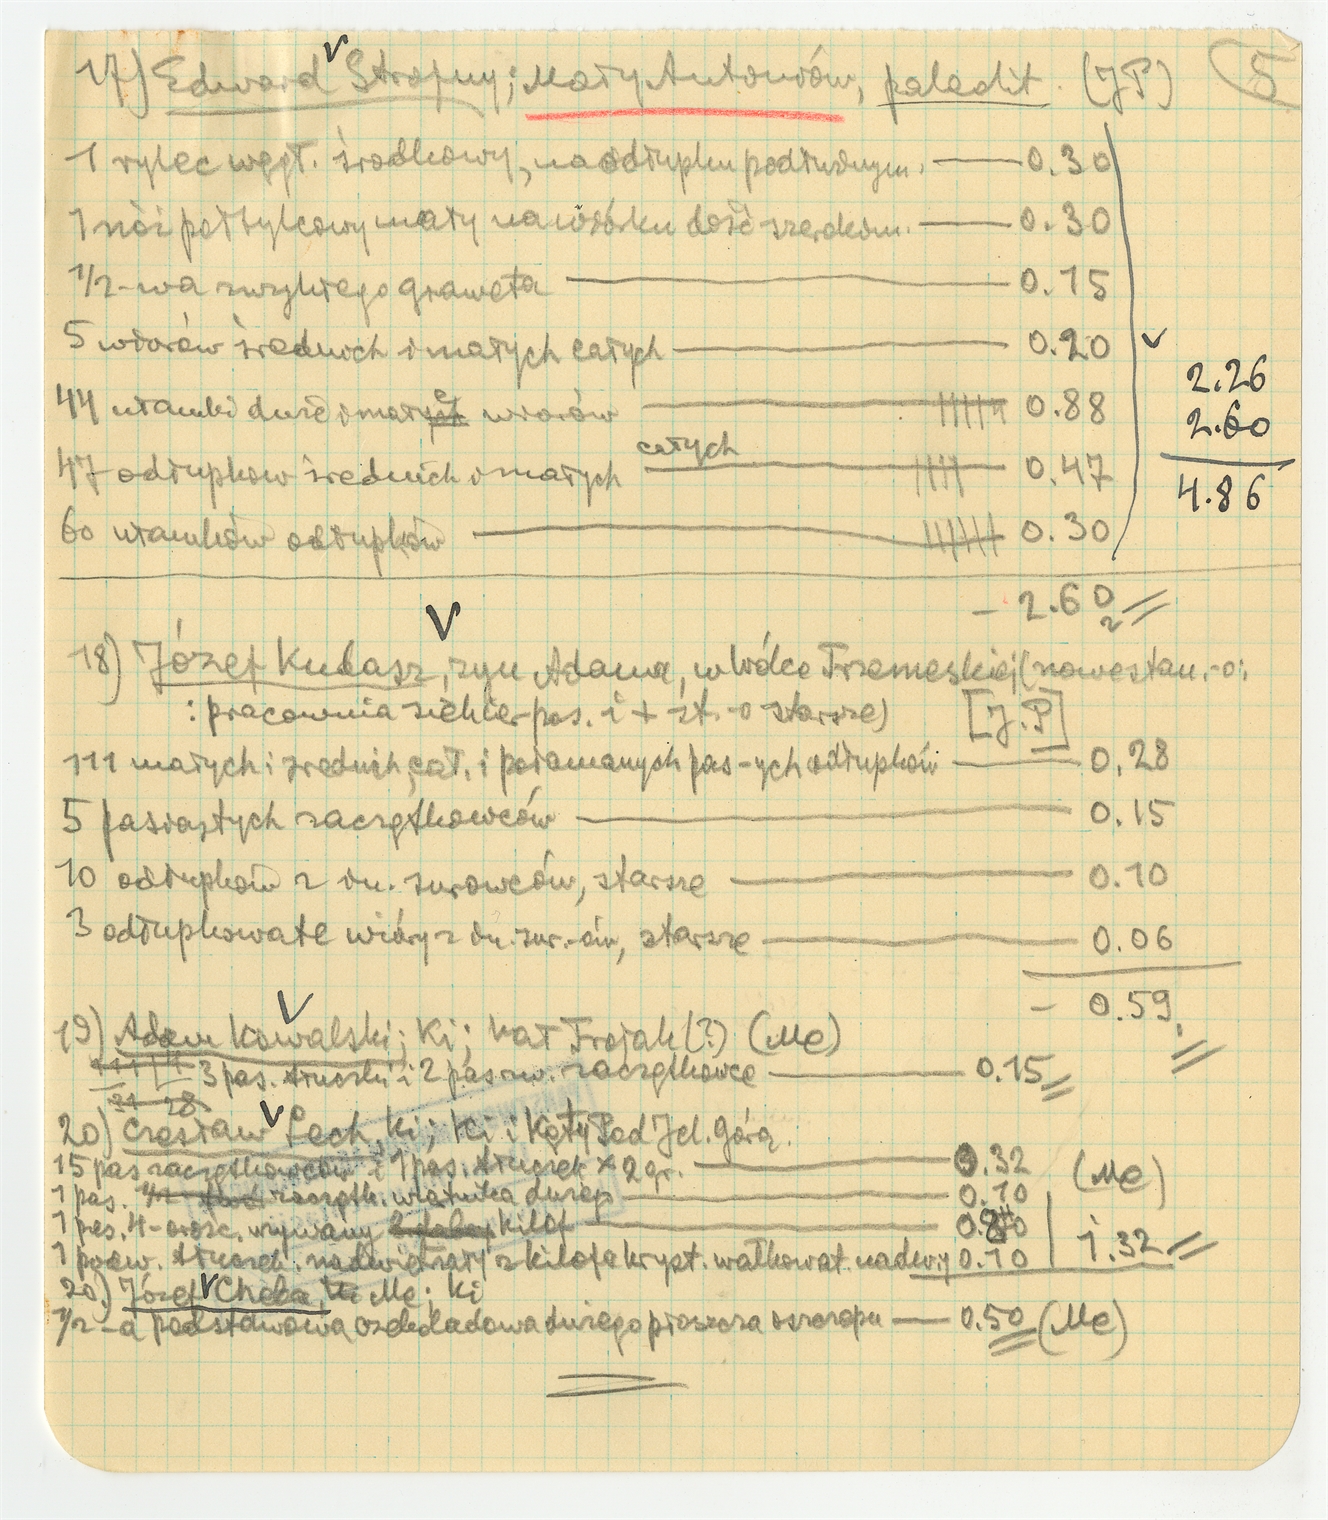 17) Edward Strojny; Mały Antoniów, paleolit. (JP) 5
1 rylec węgł. środkowy, na odłupku podłużnym. — 0.30
1 nóż półtylcowy mały na wiórku dość szerokim. — 0.30
1/2-wa zwykłego graweta — 0.15
5 wiórów średnich i małych całych — 0.20
2.26
44 ułamki duże i małe wiórów — 0.88
2.60
całych
47 odłupków średnich i małych — 0.47
4.86
60 ułamków odłupków — 0.30
- 2.60
18) Józef Kudasz, syn Adama, w Wólce Trzemeskiej (nowe stan. -o:
: pracownia siekier pas. i + st. -o starsze) [J.P]
111 małych i średnich, cał. i połamanych pas-ych odłupków — 0.28
5 pasiastych zaczątkowców — 0.15
10 odłupków z in. surowców, starsze — 0.10
3 odłupkowate wióry z in. sur.-ów, starsze — 0.06
- 0.59
19) Adam Kowalski; Ki; nat Trojak (?) (Me)
3 pas. tłuczki i 2 pas rw. zaczątkowce — 0.15
31 28
20) Czesław Lech, Ki; Ki i Kąty Pod Jel. Górą.
15 pas zaczątkowców i 1 pas. tłuczek × 2 gr. — 0.32 (Me)
1 pas. 1/2 zaczątk. dużego — 0.10
1 pas. 4-ośc. używany kilof — 0.80
1.32
1 podw. tłuczek. z kilofa kryst. wałkowat. — 0.10
20.) Józef Cheba, Ki Me; Ki
1/2-a podstawowa dużego płoszcza oszczepu — 0.50 (Me)